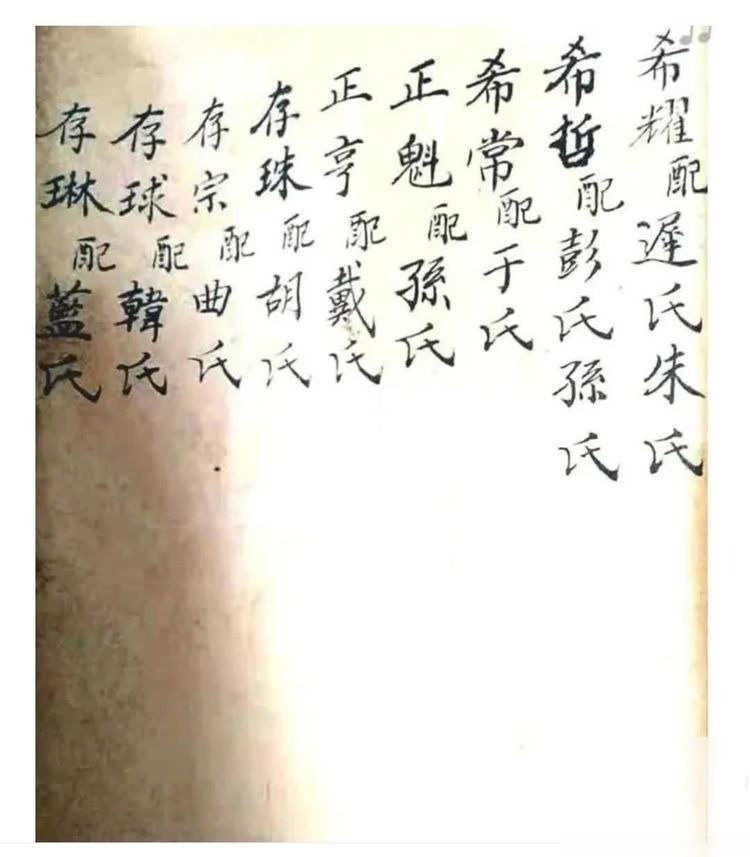 希耀配遲氏朱氏
希哲配彭氏孫氏
希常配于氏
正魁配孫氏
正亨配戴氏
存珠配胡氏
存宗配曲氏
存球配韓氏
存琳配藍氏